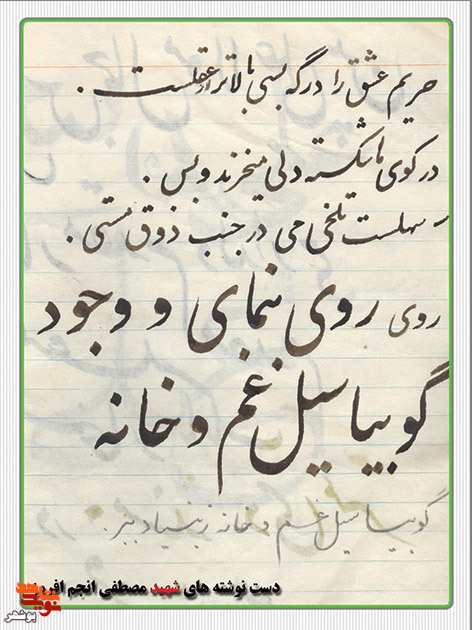 حریم عشق را درگه بسی بالاتر از عقلست .
در کوی ما شکسته دلی میخرند و بس .
سهلست تلخی می در جنب ذوق مستی .
روی روی نمای و وجود
گو بیا سیل غم و خانه
گو بیا سیل غم و خانه ز بنیاد ببر .
دست نوشته های شهید مصطفی انجم افروز
نوید شاهد
بوشهر